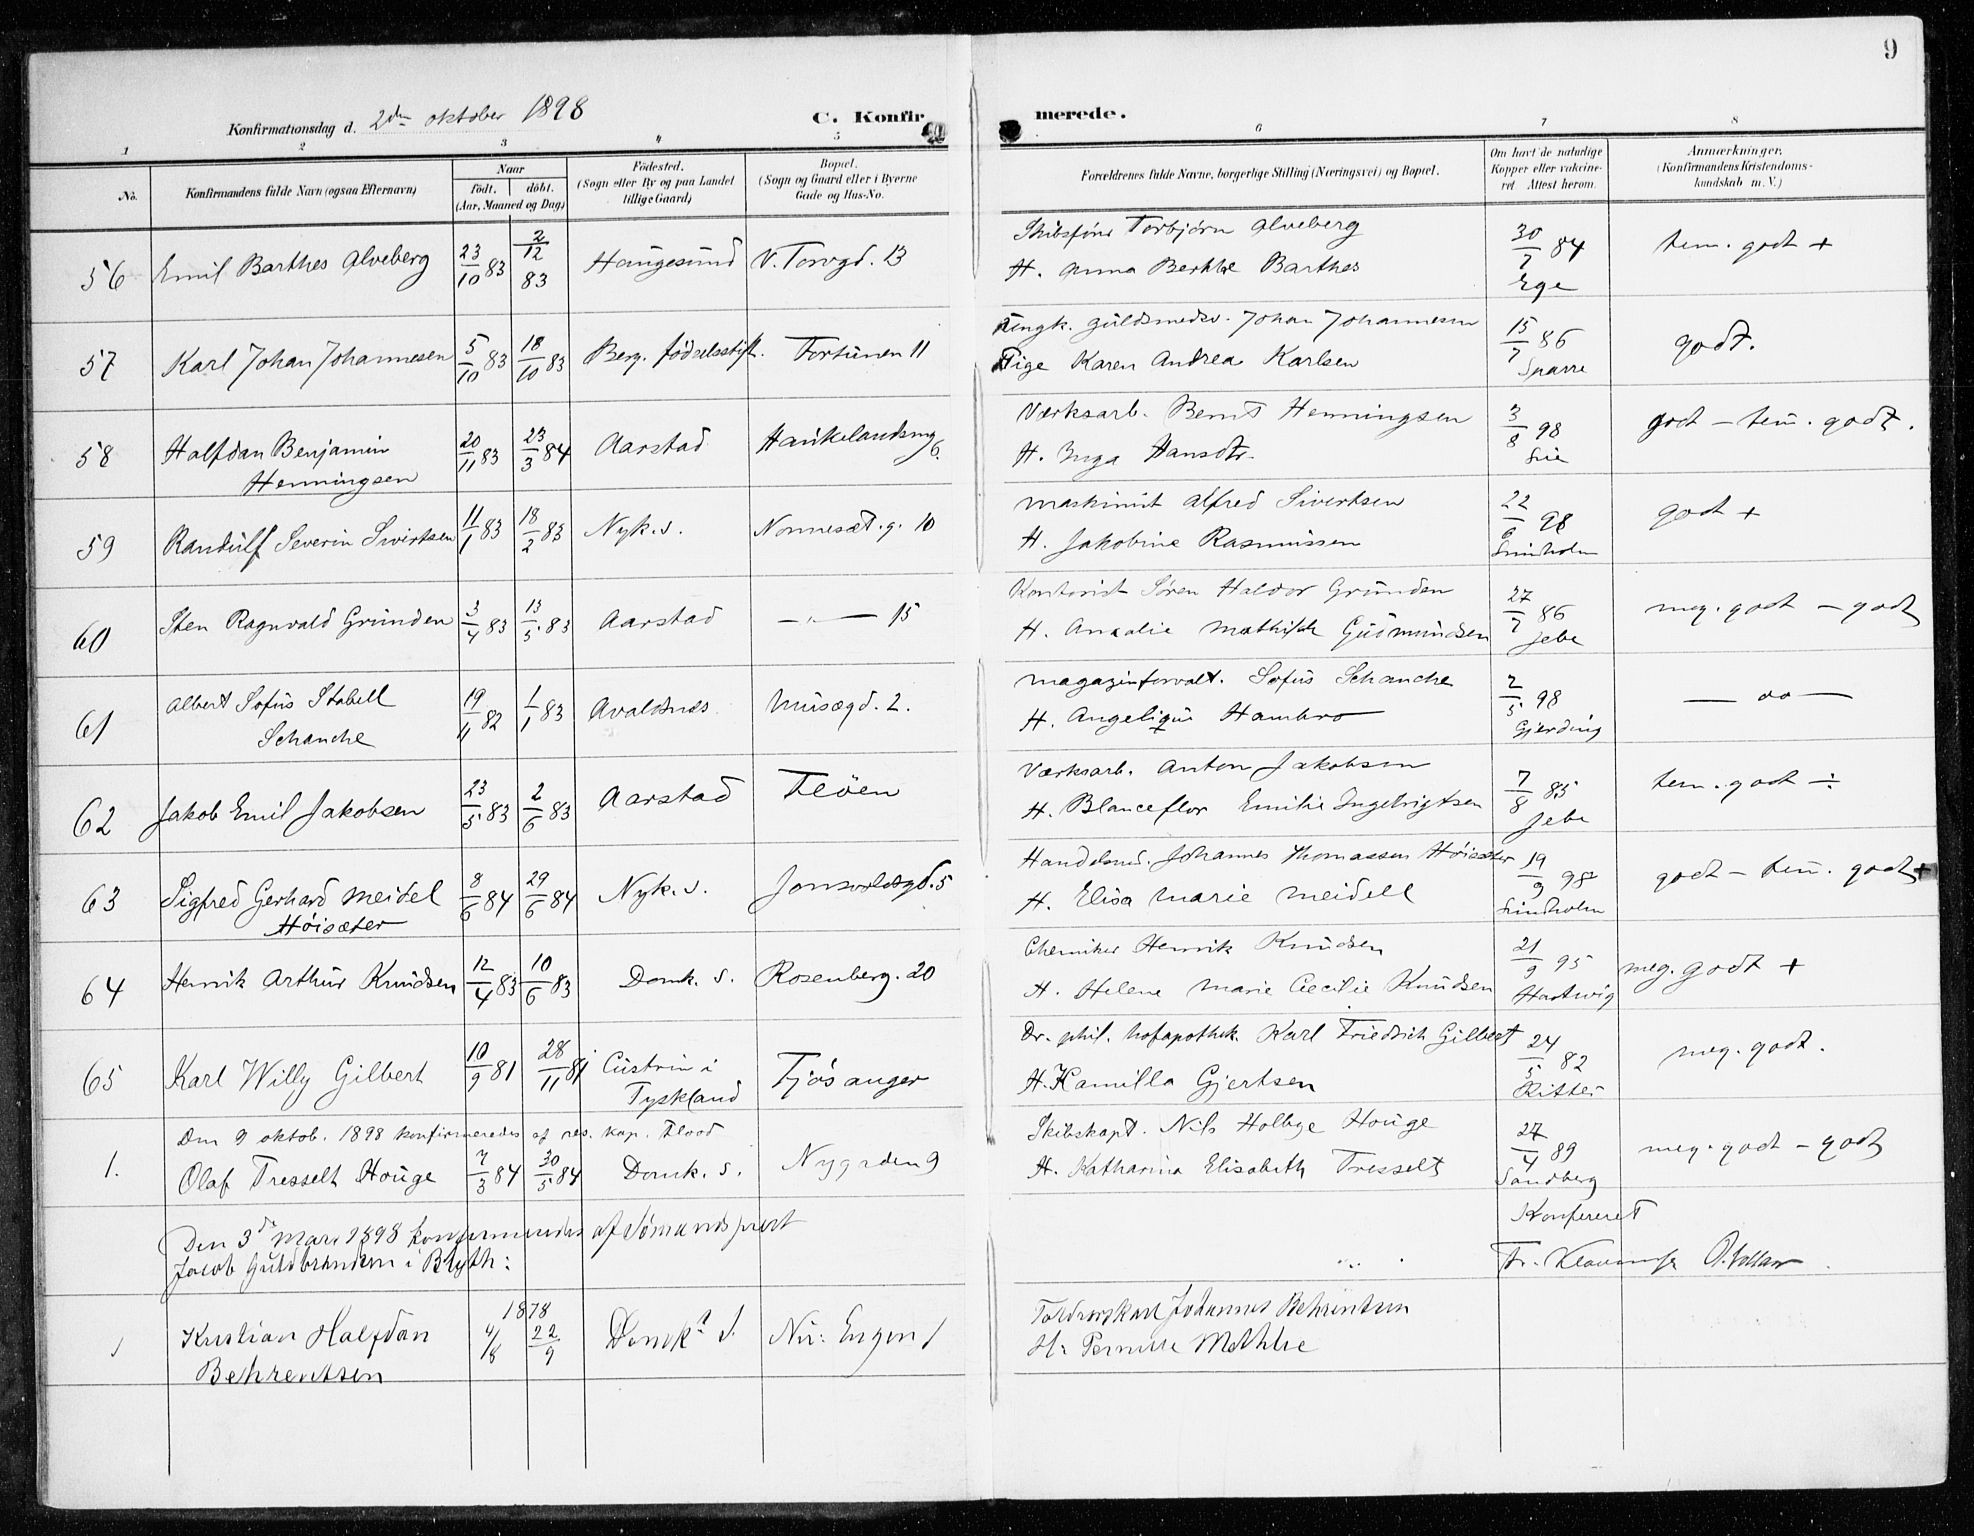 9
Konfirmationsdag d. 2den oktober 1898 C. Konfir merede.
1 2 3 4 5 6 7 8
No. Konfirmandens fulde Navn (ogsaa Efternavn) Naar født. døbt. (Aar, Maaned og Dag) Fødested. (Sogn eller By og paa Landet tillige Gaard) Bopæl. (Sogn og Gaard eller i Byerne Gade og Hus-No. Forældrenes fulde Navne, borgerlige Stilling (Næringsvei) og Bopæl. Om havt de naturlige Kopper eller vakcineret Attest herom. Anmærkninger. (Konfirmandens Kristendomskundskab m. V.)
56 Emil Barthes Alveberg 23/10 83 2/12 83 Haugesund V. Torvgd. 13 Torbjørn Alveberg 30/7 84 tem. godt +
H. Anna Barthes Ege
57 Karl Johan Johannesen 5/10 83 18/10 83 Berg. fødselsstift. Fortunen 11 Ungk. guldsmedsv. Johan Johannesen 15/7 86 godt.
Pige Karen Andrea Karlsen Sparre
58 Halfdan Benjamin 20/11 83 23/3 84 Aarstad 6. Værksarb. Bernt Henningsen 3/8 98 godt - tem. godt.
Henningsen H. Inga Hansdtr. Lie
59 Randulf Severin Sivertsen 11/1 83 18/2 83 Nyk. s. Nonnesæt. g. 10 Maskinist Alfred Sivertsen 22/9 98 godt +
H. Jakobine Rasmussen Lindholm
60 Sten Ragnvald Grunden 3/4 83 13/5 83 Aarstad - " - 15 Kontorist Søren Haldor Grunden 27/7 86 meg. godt - godt
H. Amalie Mathilde Gudmundsen Jebe
61 Albert Sofus Stabell 19/11 82 1/1 83 Avaldsnes Musægd. 2. Magazinforvalt. Sofus Schanche 2/5 98 - oo -
Schanche H. Angelique Hambro Gjerding
62 Jakob Emil Jakobsen 23/5 83 2/6 83 Aarstad Fløen Værksarb. Anton Jakobsen 7/8 85 tem. godt ÷
H. Blanceflor Emilie Ingebrigtsen Jebe
63 Sigfred Gerhard Meidel 8/6 84 29/6 84 Nyk. s. Jonsvoldsgd. 5 Johannes Thomassen Høisæter 19/9 98 godt - tem. godt +
Høisæter H. Elisa Marie Meidell Lindholm
64 Henrik Arthur Knudsen 12/4 83 10/6 83 Domk. s. Rosenberg. 20 Chemiker Henrik Knudsen 21/9 95 meg. godt +
H. Helene Marie Cecilie Knudsen Hartwig
65 Karl Willy Gilbert 10/9 81 28/11 81 Cüstrin i Tjøsanger Dr. phil. hofapothek. Karl Friedrich Gilbert 24/5 82 meg. godt.
Tyskland H. Kamilla Gjertsen Ritter
Den 9 oktob. 1898 konfirmeredes af res. kap. Flood
1. Olaf Tresselt Houge 7/3 84 30/5 84 Domk. s. Nygaden 9 Skibskapt. Nils Holbye Houge 27/4 89 meg. godt - godt
H. Katharina Elisabeth Tresselt Sandberg
Den 3de 1898 konfirmeredes af Sømandsprest
Jacob Guldbrandsen i Blyth: Konfereret
1 Kristian Halfdan 1878 4/8 22/9 Domk. s. Engen 1 Johannes Behrentsen
Behrentsen H.